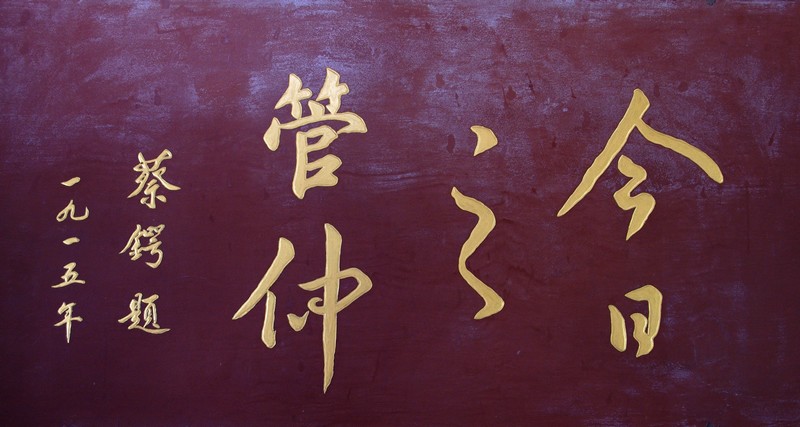 今日
之
管仲
蔡鍔題
一九一五年